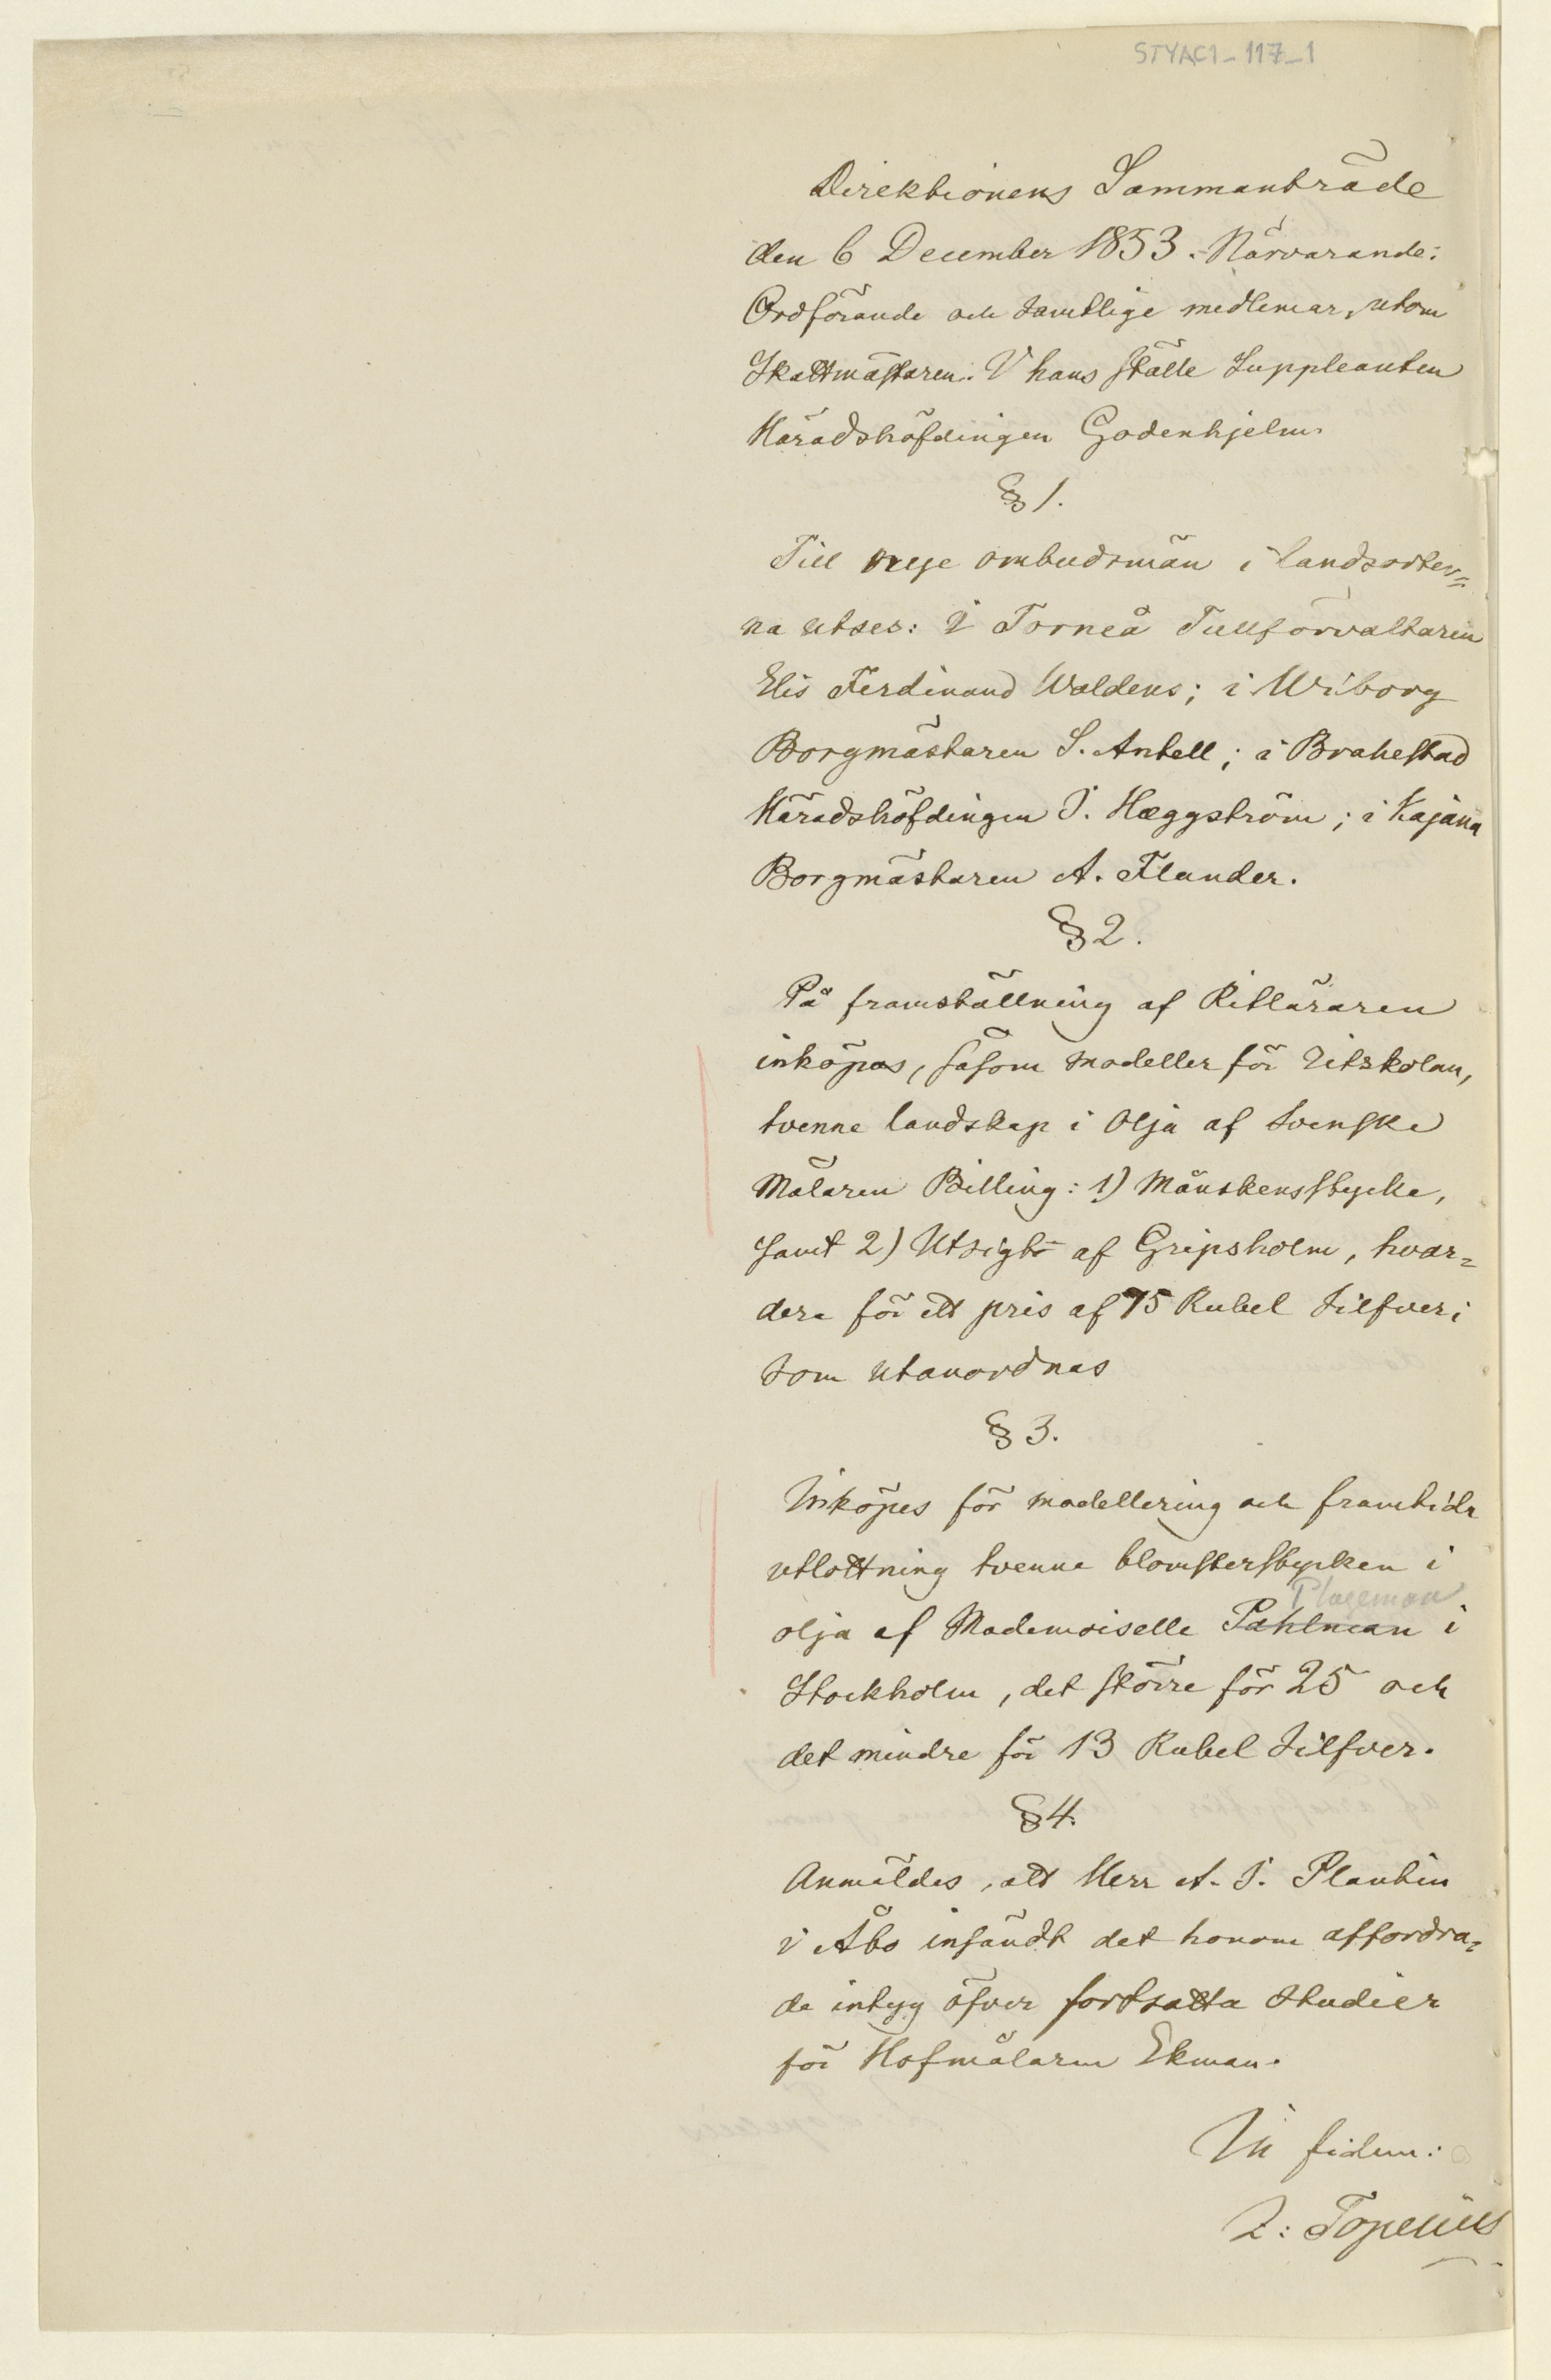 STYAC1_117_1
Direktionens Sammanträde
den 6 December 1853. Närvarande:
Ordförande och samtlige medlemar, utom
Skattmästaren. I hans ställe Suppleanten
Häradshöfdingen Godenhjelm
§ 1.
Till nye ombudsmän i landsorter=
na utses: I Torneå Tullförvaltaren
Elis Ferdinand Waldens; i Wiborg
Borgmästaren S. Antell; i Brahestad
Häradshöfdingen J. Hæggström; i Kajana
Borgmästaren A. Flander.
§ 2.
På framställning af Ritläraren
inköpas, såsom modeller för Ritskolan,
tvenne landskap i olja af svenske
Målaren Billing: 1) Månskensstycke,
samt 2) Utsigt af Gripsholm, hvar=
dera för ett pris af 75 Rubel silfver;
som utanordnas
§ 3.
Inköpes för modellering och framtida
utlottning tvenne blomsterstycken i
Plageman
olja af Mademoiselle Pahlman i
Stockholm, det större för 25 och
det mindre för 13 Rubel silfver.
§ 4.
Anmäldes, att Herr A. J. Plantin
i Åbo insändt det honom affordra=
de intyg öfver fortsatta studier
för Hofmålaren Ekman.
In fidem:
Z: Topelius